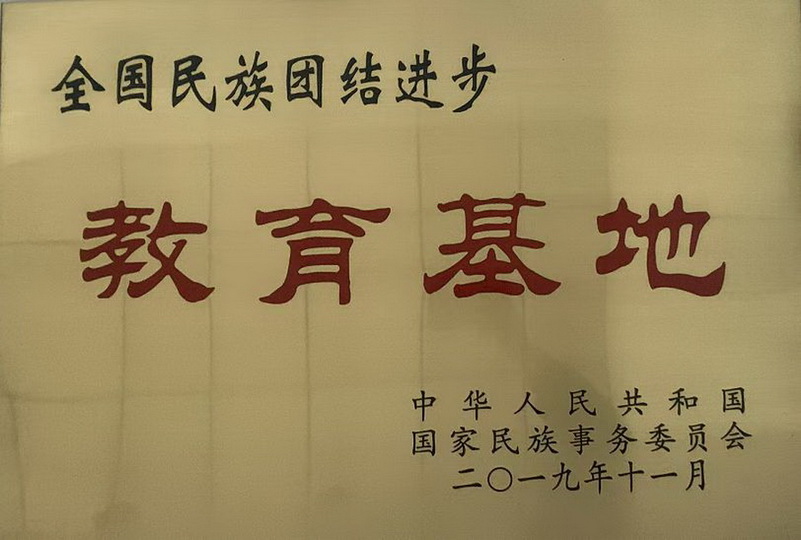 全国民族团结进步
教育基地
中华人民共和国
国家民族事务委员会
二〇一九年十一月